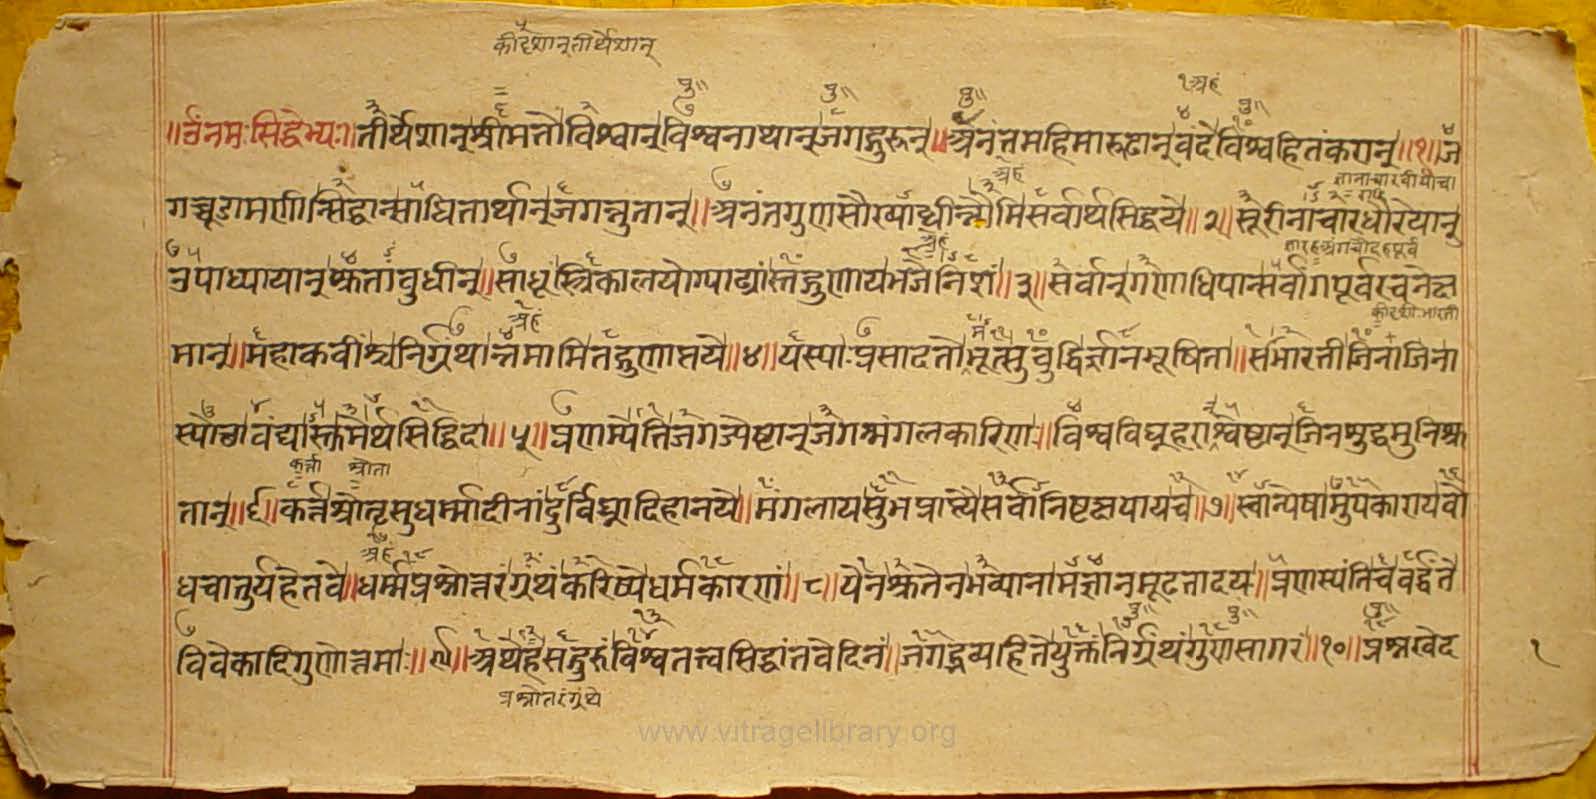 कीदृशान्तीर्थेशान्
॥ॐनमःसिद्धेभ्यः॥तीर्थेशान्श्रीमतोविश्वान्विश्वनाथान्जगद्गुरून्॥अनंतमहिमारूढान्वंदेविश्वहितंकरान्॥१॥ज
गच्चूडामणीन्सिद्धान्साधितार्थान्जगन्नुतान्॥अनंतगुणसौख्याब्धीन्नौमिसर्वार्थसिद्धये॥२॥सूरीनाचारधौरेयान्
नुपाध्यायान्श्रुतांबुधीन्॥साधूंस्त्रिकालयोगाढ्यांस्तद्गुणायभजेनिशं॥३॥सर्वान्गणाधिपान्सर्वांगपूर्वरचनेक्ष
मान्॥महाकवींश्चनिर्ग्रंथान्नमामितद्गुणाप्तये॥४॥यस्याःप्रसादतोभूत्सुबुद्धिर्ज्ञानभूषिता॥सभारतीजिनाजिना
स्योत्थावंद्यास्तुमेर्थसिद्धिदा॥५॥प्रणम्येतिजगज्येष्टान्जगन्मंगलकारिणः॥विश्वविघ्नहरांश्चेष्टान्जिनशुद्धमुनिश्रु
तान्॥६॥कर्तृश्रोतृसुधर्म्मादीनांदुर्विघ्नादिहानये॥मंगलायसुभप्राप्त्यैसर्वानिष्टक्षयायच॥७॥स्वान्येषामुपकारायबो
धचातुर्यहेतवे॥धर्म्मप्रश्नोत्तरंग्रंथंकरिष्येधर्मकारणं॥८॥येनश्रुतेनभव्यानामज्ञानमूढतादयः॥प्रणस्यंतिचवर्द्धंते
विवेकादिगुणोत्तमाः॥९॥अथेहसद्गुरुंविश्वतत्त्वसिद्धांतवेदिनं॥जगद्भव्यहितेयुक्तंनिर्ग्रंथंगुणसागरं॥१०॥प्रश्नखेद
१
प्रश्नोतरंग्रंथे
www.vitragelibrary.org